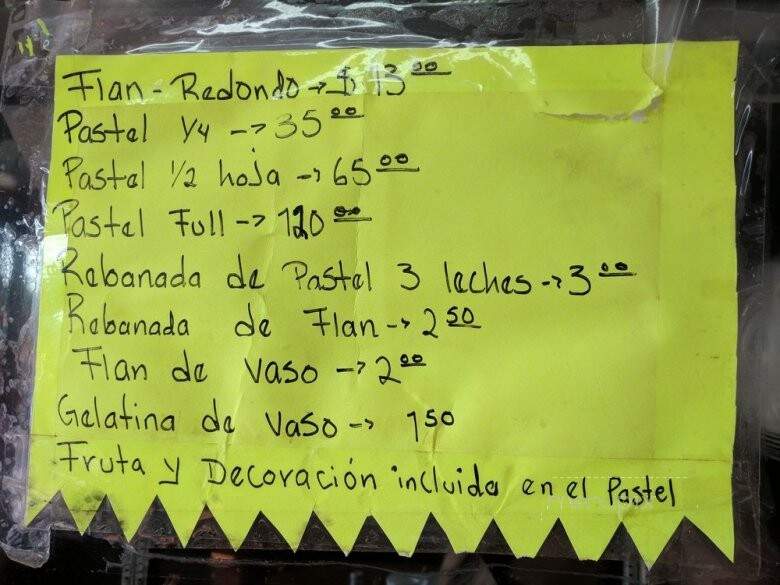 Flan - Redondo → $ 13.00
Pastel 1/4 → 35.00
Pastel 1/2 hoja → 65.00
Pastel Full → 120.00
Rebanada de Pastel 3 leches → 3.00
Rebanada de Flan → 2.50
Flan de vaso → 2.00
Gelatina de vaso → 1.50
Fruta y Decoración incluida en el Pastel